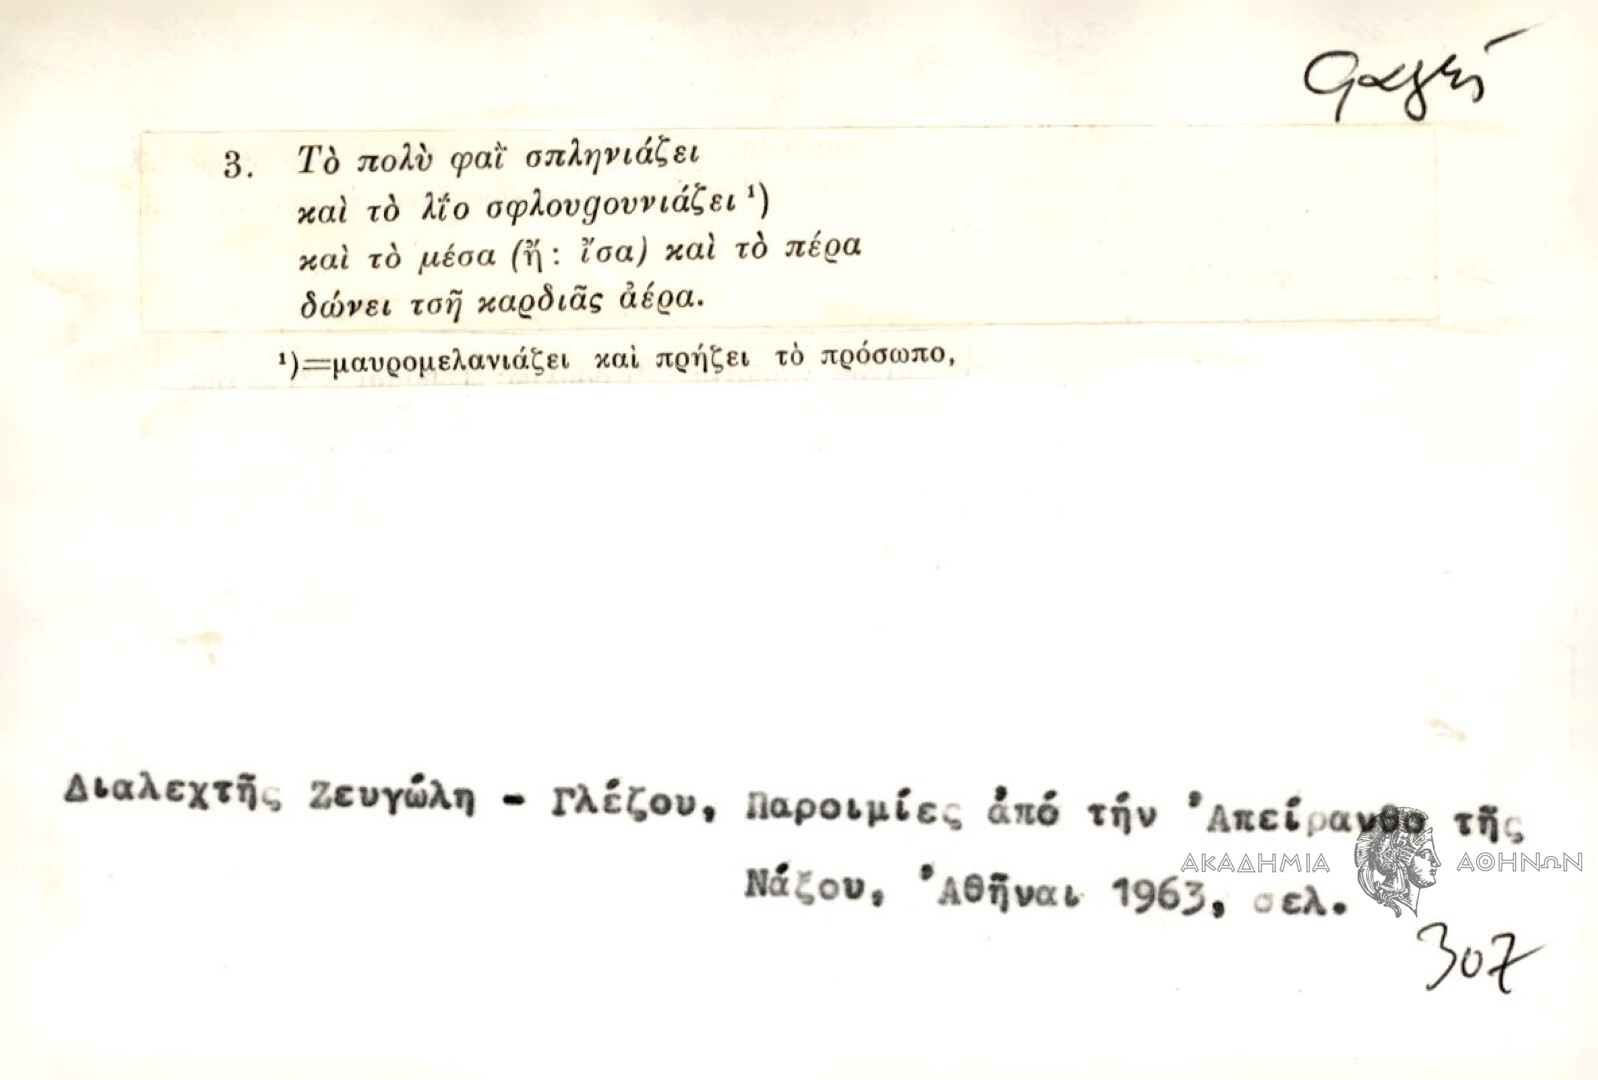 φαγί
3. Τὸ πολὺ φαῒ σπληνιάζει
καὶ τὸ λΐο σφλουgουνιάζει ¹)
καὶ τὸ μέσα (ἤ : ἴσα) καὶ τὸ πέρα
δώνει τσῆ καρδιᾶς ἀέρα.
¹)=μαυρομελανιάζει καὶ πρήζει τὸ πρόσωπο,
Διαλεχτῆς Ζευγώλη - Γλέζου, Παροιμίες ἀπό τήν Ἀπείρανθο τῆς
ΑΚΑΔΗΜΙΑ ΑΘΗΝΩΝ
Νάξου, Ἀθῆναι 1963, σελ.
307